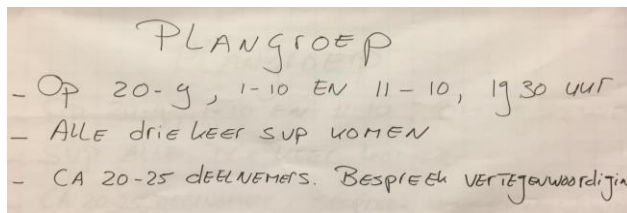 PLANGROEP
- OP 20-9, 1-10 EN 11-10, 19 30 uur
- ALLE drie keer SVP KOMEN
- CA 20-25 dEELNEMERS. BESPREEK VERTEGENWOORdigin